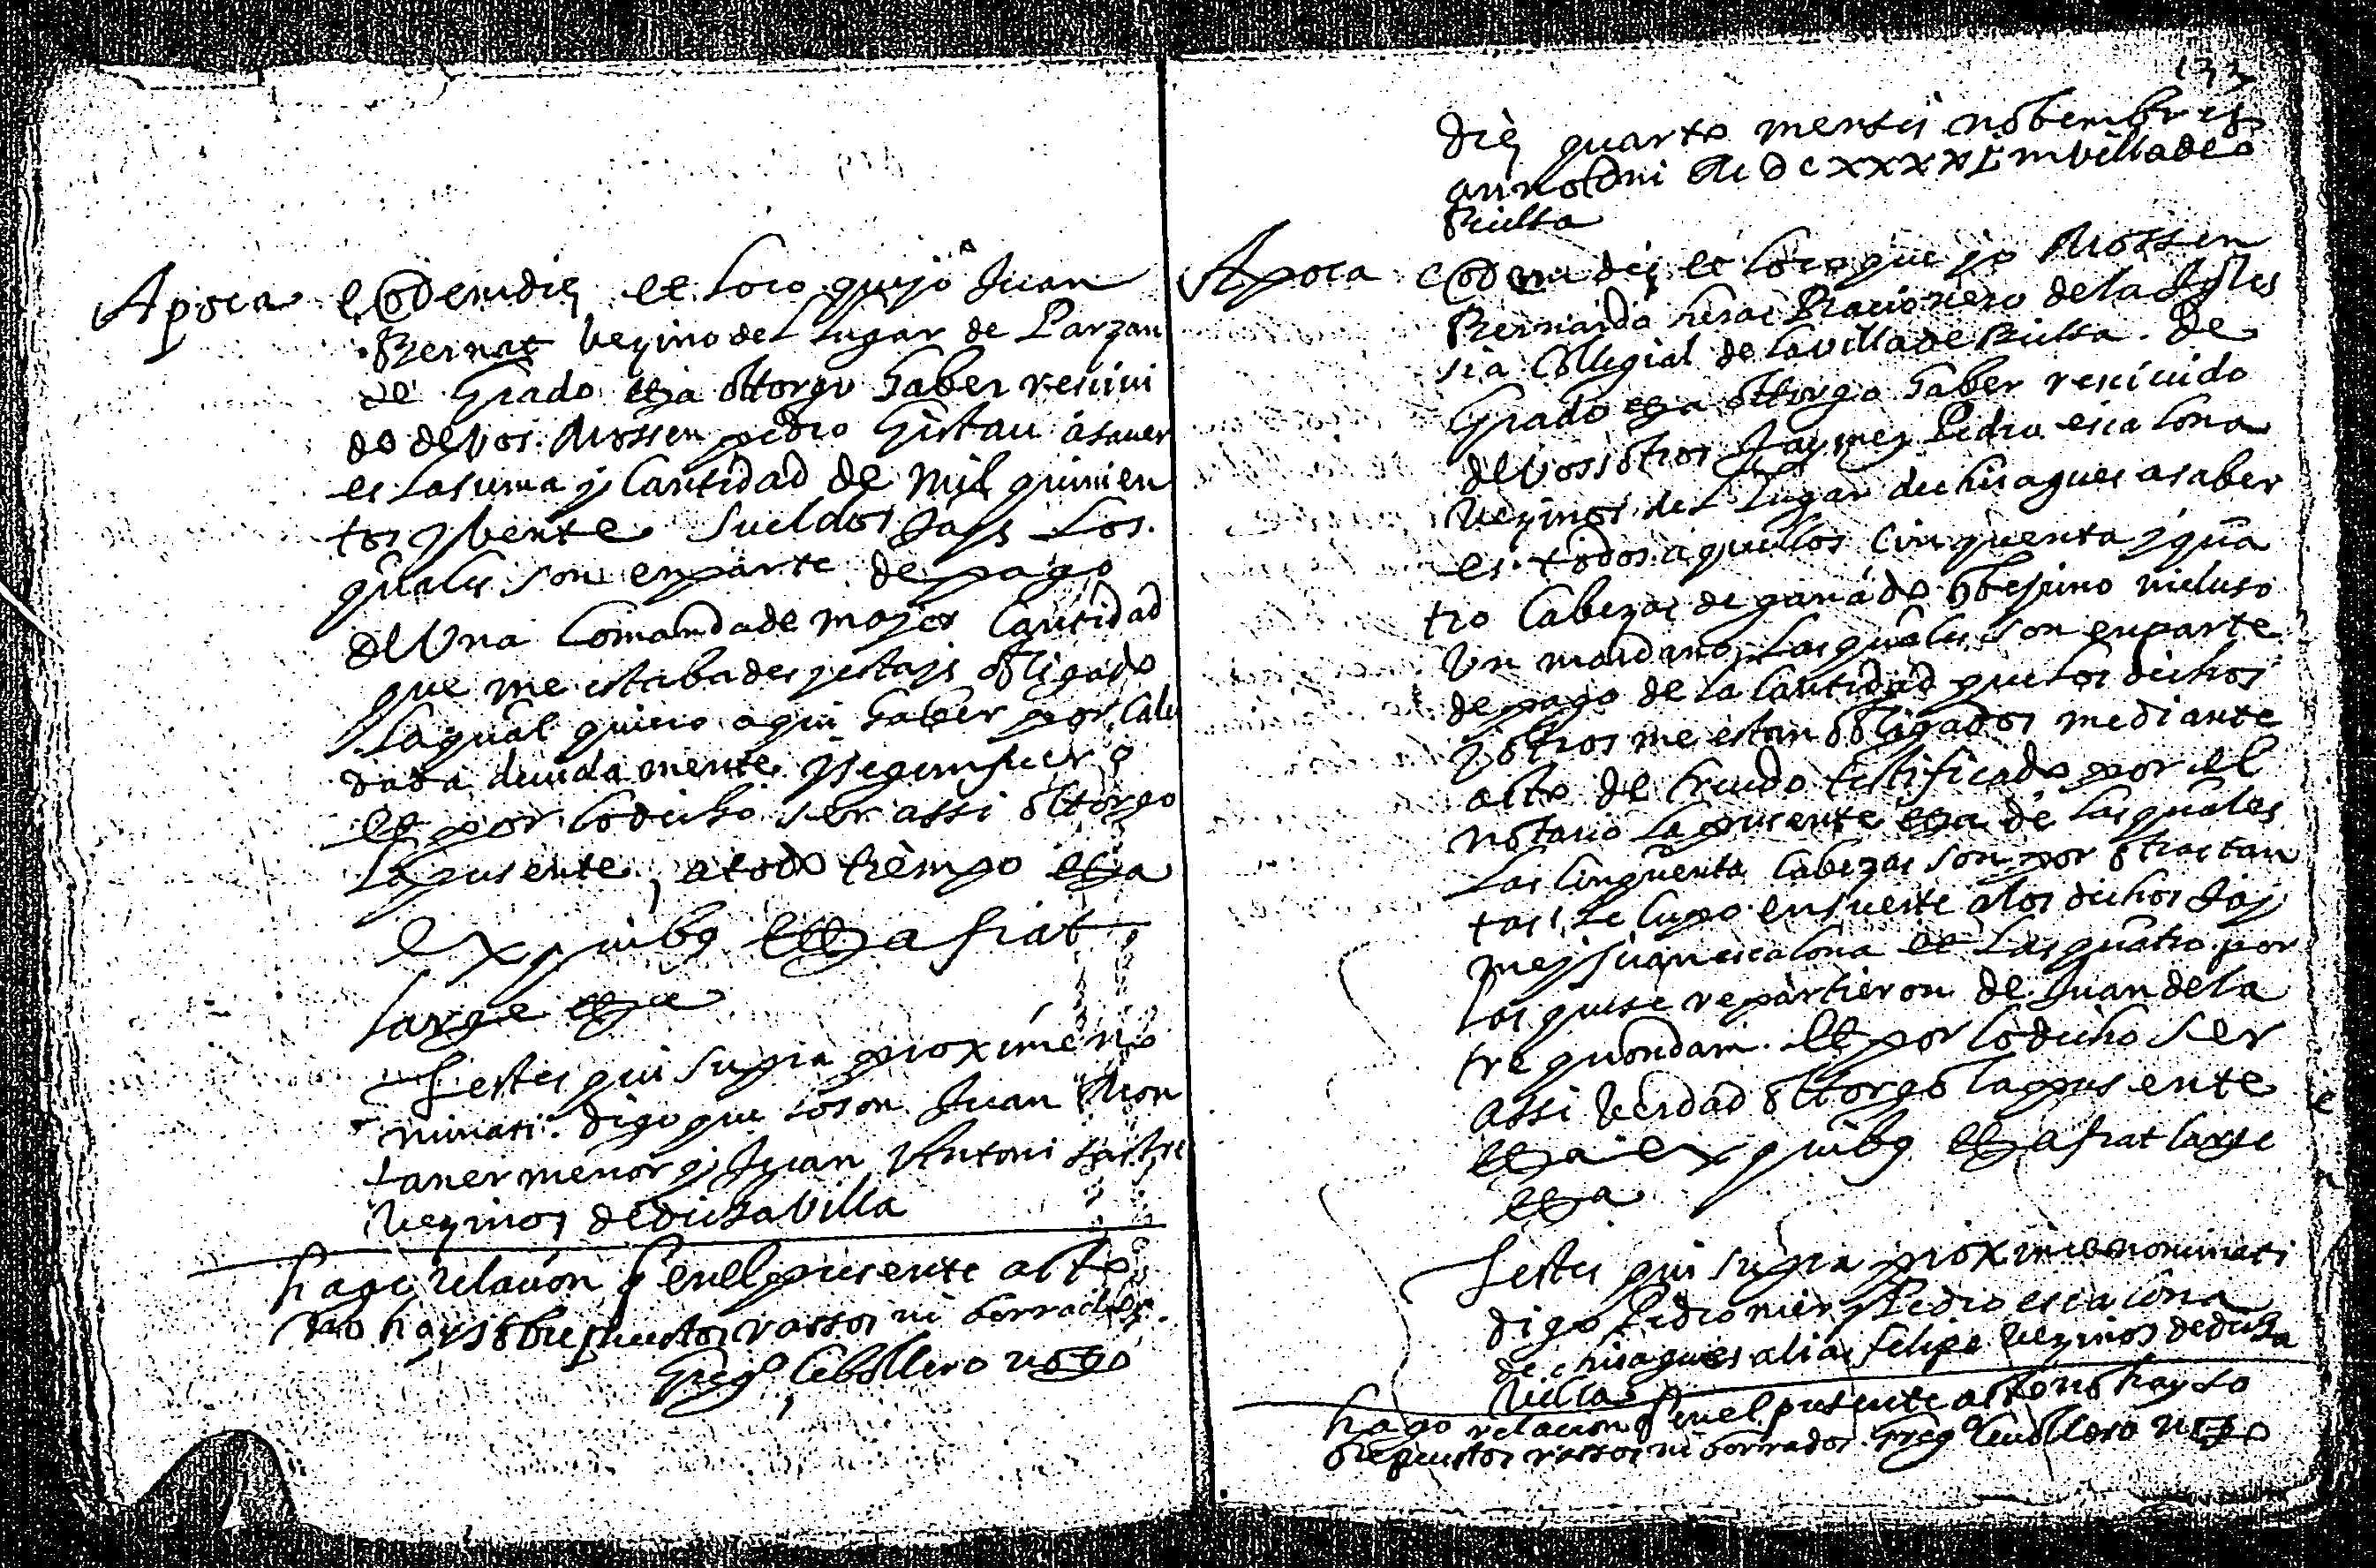 Apoca eodem die et loco que jo Juan
Bernat vezino del lugar de Parzan
de Grado etza ottorgo haber reciui
do de vos Mossen pedro Gistau asauer
es la suma y Cantidad de mil quinien
tos y vente sueldos Jaqs Los
quales son en parte de pago
de Una Comanda de mayor Cantidad
que me estabades y estays obligado
La qual quiero aqui haber por Cale
dada deuidamente y segun fuero
et por lo dicho ser assi ottorgo
La presente, a todo tiempo etza
ex quibus etza fiat
large etza
Testes qui supra proxime no
minati digo que lo son Juan Mon
taner menor y Juan Antoni sastre
vezinos de dicha Villa
hago relacion q en el presente acto
no hay sobrepuestos rassos ni borrados.
Gregº Cebollero noto
133
die quarto mensis nobembris
anno Dni MDCXXXX in villa de
Bielsa
Apoca eodem die et loco que jo Mossen
Bernardo heras Racionero de la Igles
sia Collegial de la villa de Bielsa. de
Grado etza ottorgo haber reciuido
de vossotros Jayme y Pedro escalona
vezinos del Lugar de chisagues a saber
es todos aquellos Cinquenta y qua
tro Cabezas de ganado obejuno incluso
Un mardano, Las quales son en parte
de pago de la Cantidad que los dichos
y otros me estan obligados mediante
acto de treudo testificado por el
notario la presente etza de las quales
Las Cinquenta Cabezas son por otras tan
tas le cupo en suerte a los dichos Jay
me y Juan escalona et Las quatro por
Las que se repartieron de Juan dela
tre quondam. Et por lo dicho ser
assi verdad ottorgo la presente
etza ex quibus etza fiat large
etza
Testes qui supra proxime nominati
digo Pedro mier y Pedro escalona
de chisagues alias felipe vezinos de dicha
villa
hago relacion q en el presente acto no hay so
brepuestos rassos ni borrados. Gregº Cebollero noto